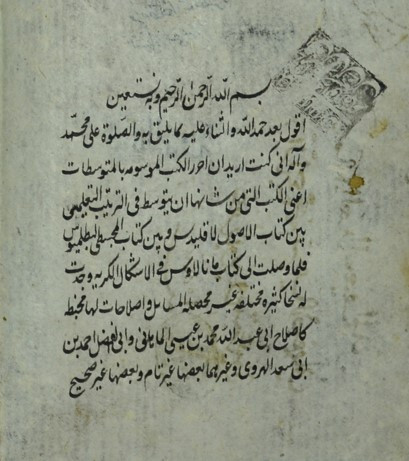 بسم الله الرحمن الرحيم وبه نستعين
اقول بعد حمد الله والثناء عليه كما يليق به والصلوة على محمد
وآله انى كنت اريد ان احرر الكتب الموسومه بالمتوسطات
اعنى الكتب التى من شانها ان يتوسط فى الترتيب التعليمى
بين كتاب الاصول لاقليدس وبين كتاب المجسطى لبطلميوس
فلما وصلت الى كتاب مانالاوس فى الاشكال الكريه وجدت
له نسخا كثيره مختلفه غير محصله المسايل واصلاحات لها مخبطه
كاصلاح ابى عبد الله محمد بن عيسى الماهانى وابى الفضل احمد بن
ابى سعد الهروى وغيرهما بعضها غير تام وبعضها غير صحيح